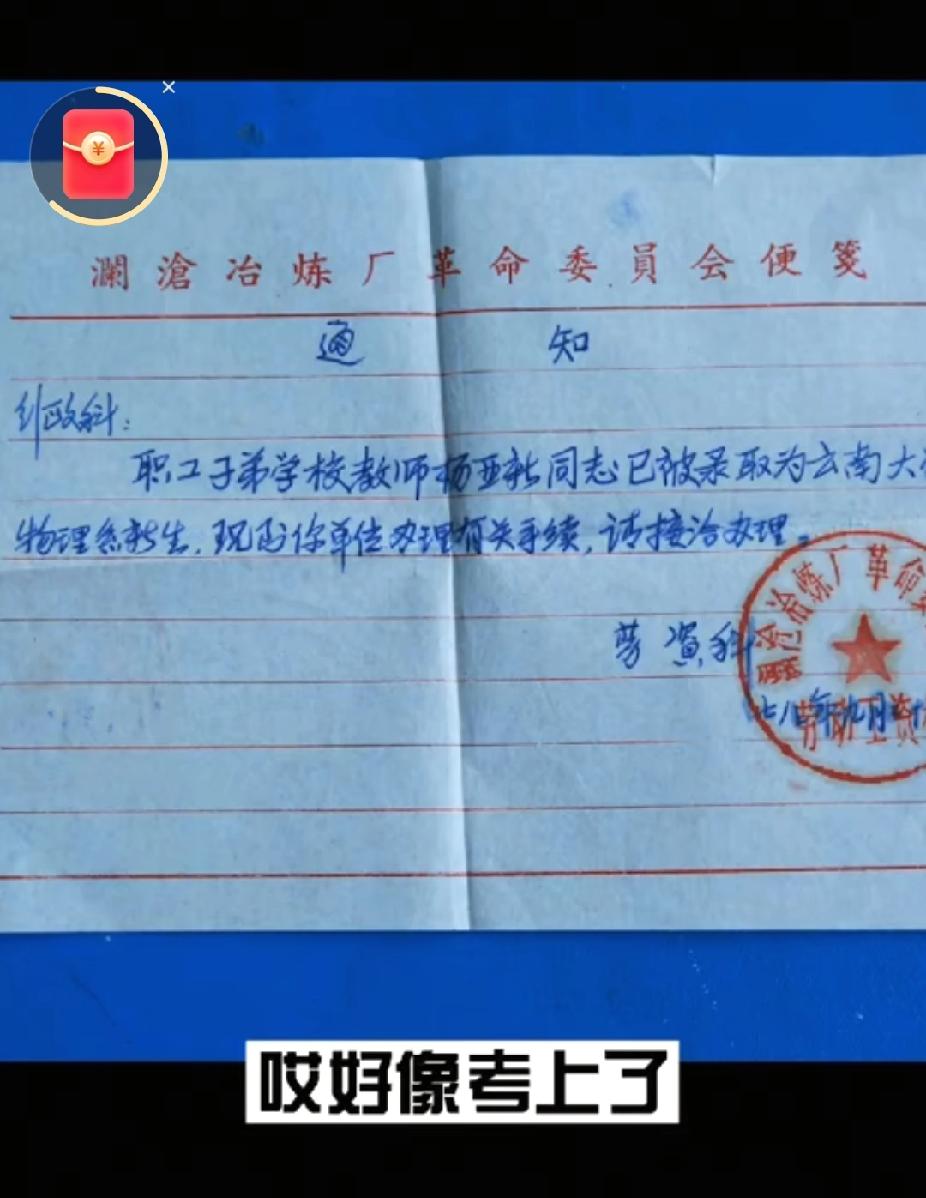 ¥
澜滄冶炼厂革命委員会便笺
通知
行政科：
职工子弟学校教师杨亚新同志已被录取为云南大
物理系新生，现函你单位办理有关手续，请接洽办理。
劳资科
澜沧冶炼厂革命委
七八年九月
劳动工资
哎好像考上了